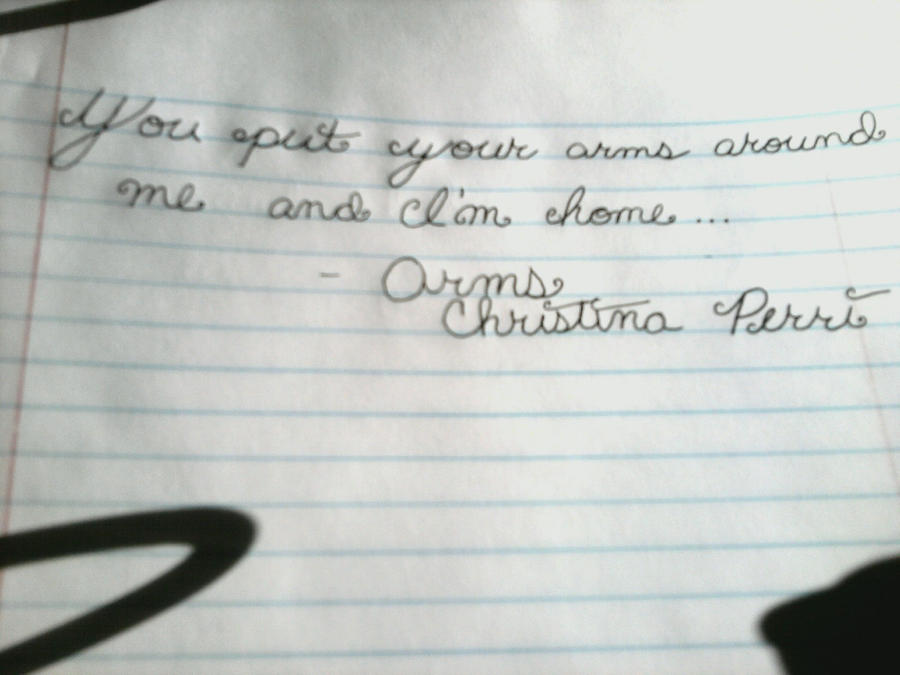 You put your arms around
me and I'm home...
- Arms,
Christina Perri